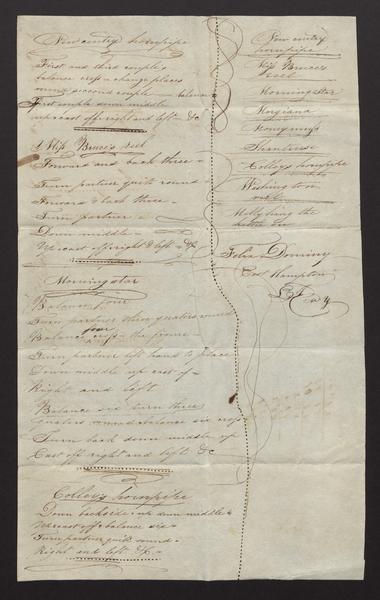 New century hornpipe
First and third couples
balance cross & change places
second couple balance
First couple down middle
up cast off right and left &c
Miss Bruce's reel
Forward and back three
Turn partner quite round
forward & back three
Turn partner
Down middle
Up cast off right & left &c
Morning star
Balance four
Turn partner three quarters round
four
Balance the figure
Turn partner left hand to place
Down middle up cast of
Right and left
Balance six turn three
quarters round balance six
Turn back down middle up
Cast off right and left &c
Colley's hornpipe
Down backside up down middle &
Up cast off & balance six
Turn partner quite round
Right and left &c
New century
hornpipe
Miss Bruce's
reel
Morning star
Morgiana
Honeymoon
Colley's hornpipe
Washington
Molly hang the
Felix Dominy
East Hampton